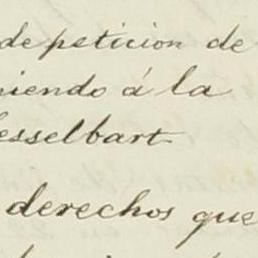 de peticion de
niendo á la
esselbart
derechos que